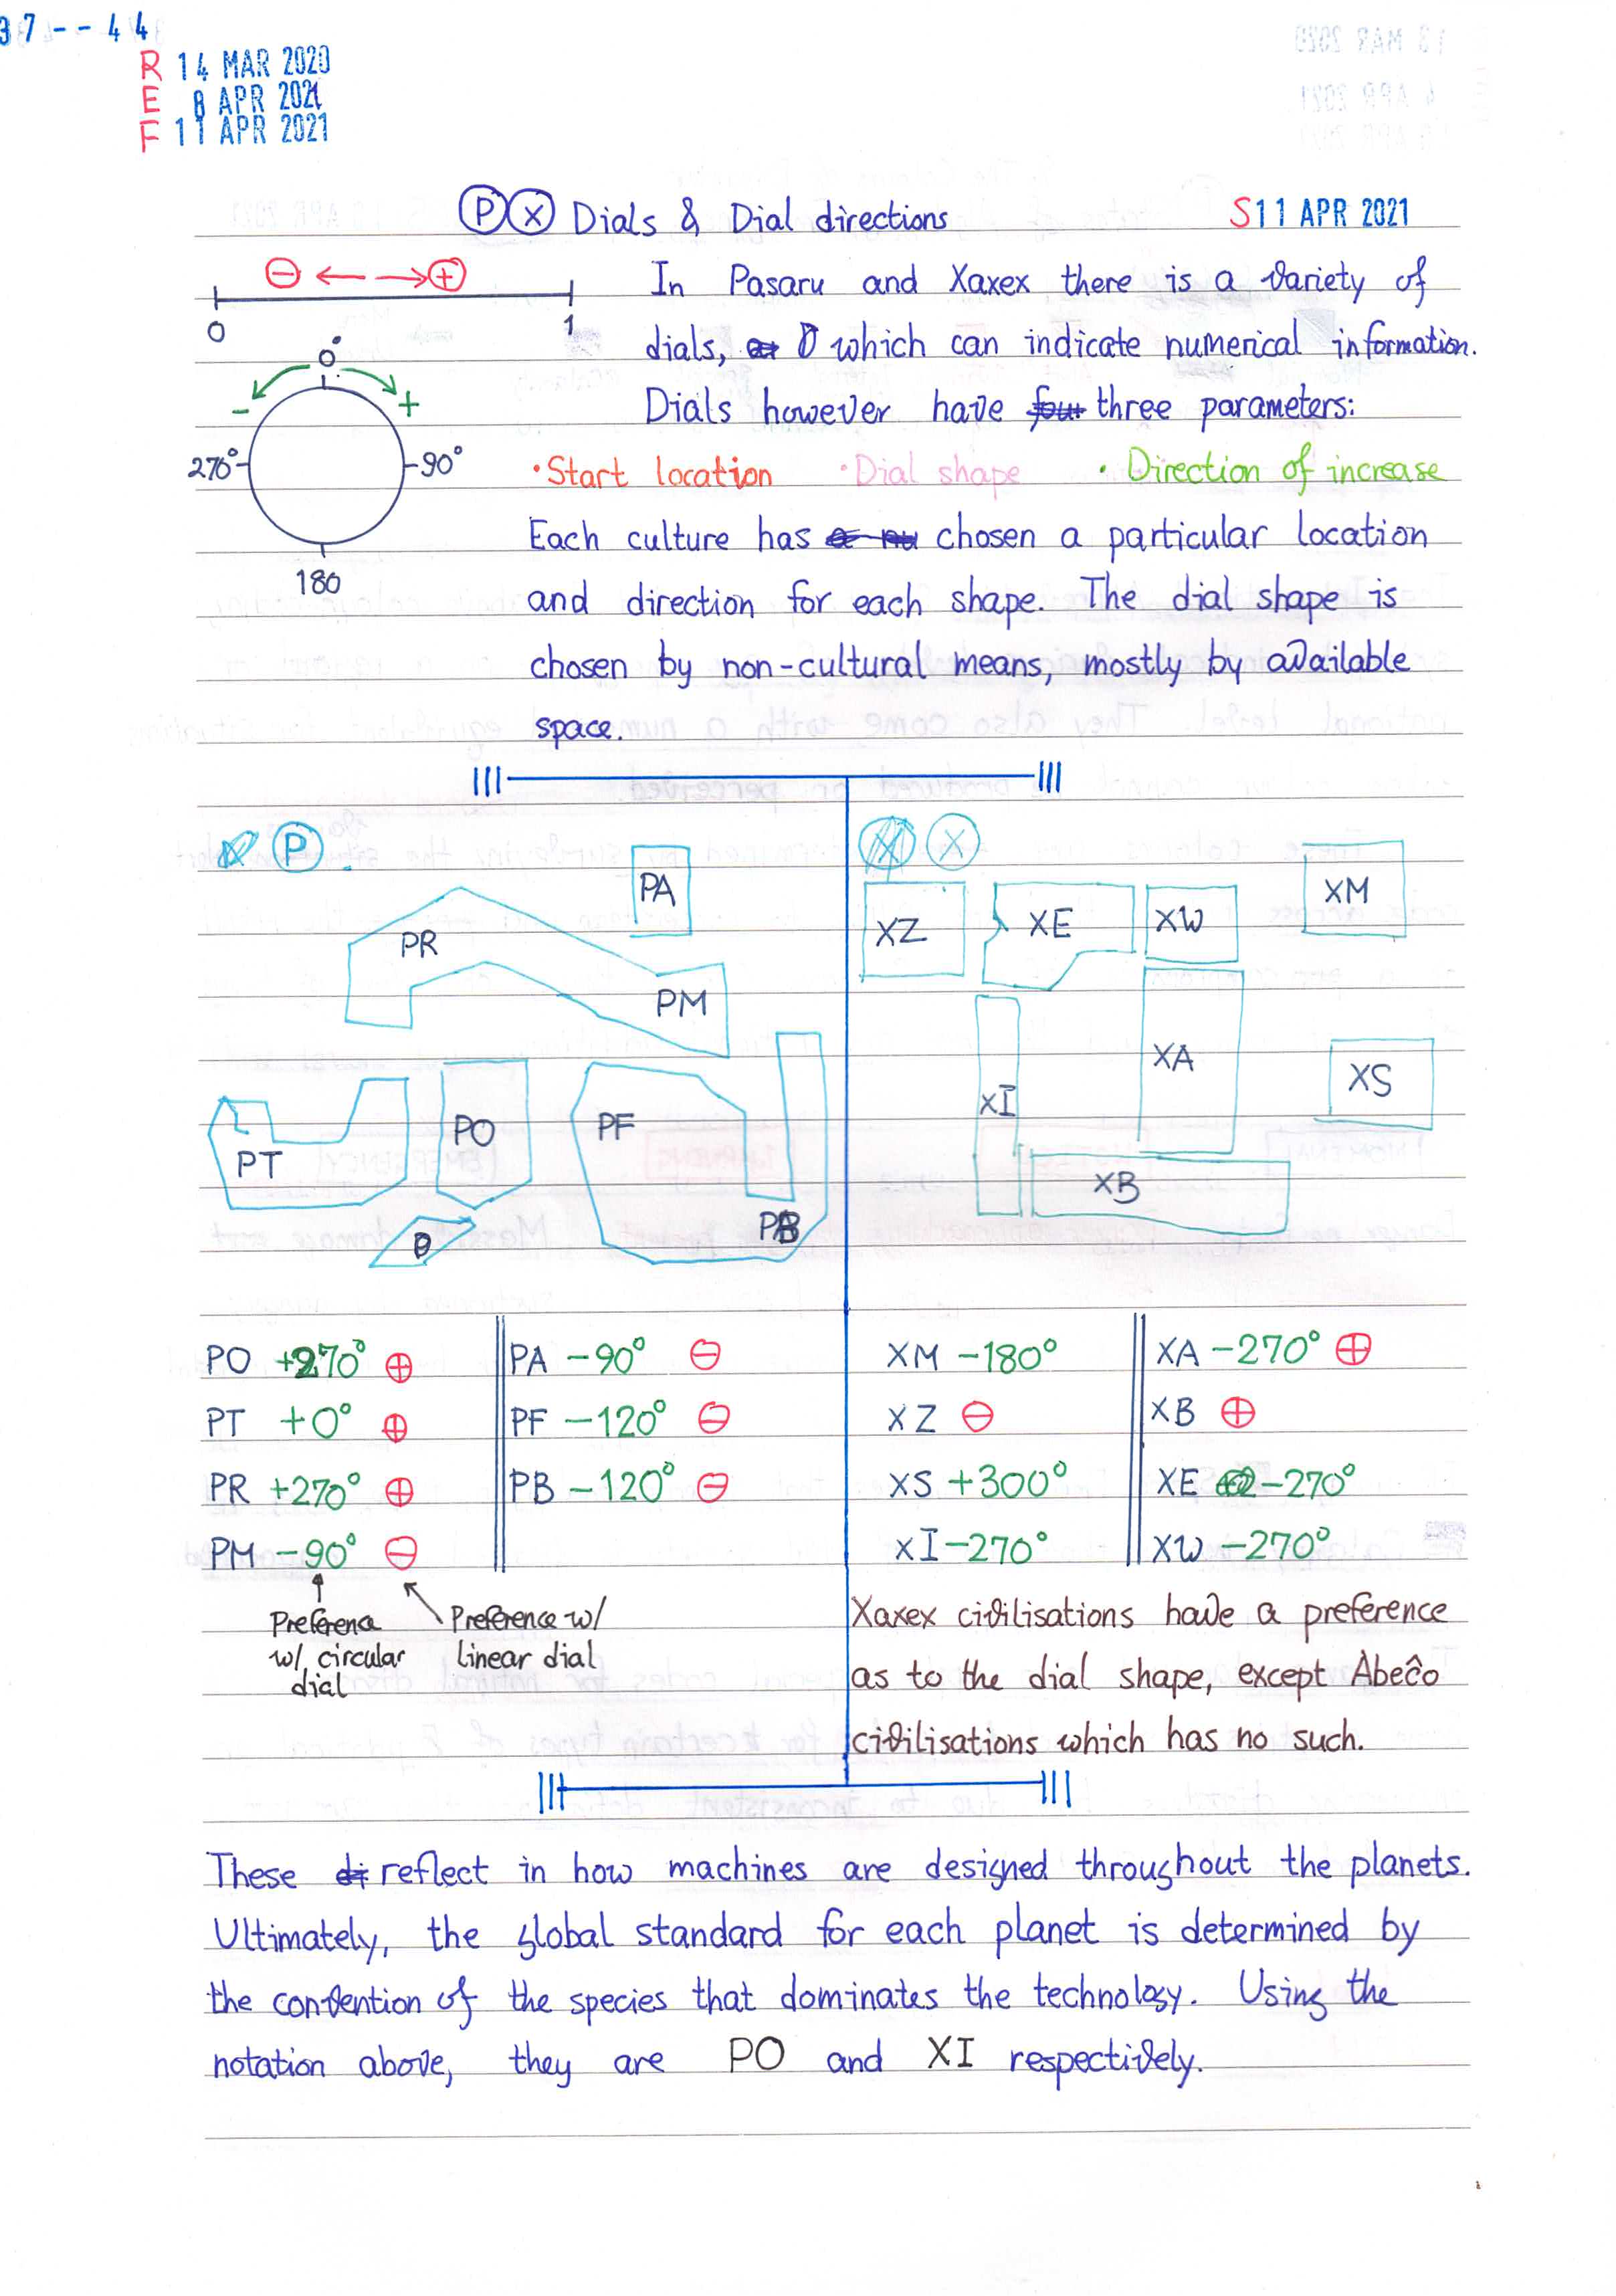 37--44
R 14 MAR 2020
E 8 APR 2021
F 11 APR 2021
P X Dials & Dial directions
S 11 APR 2021
⊖ ⊕
0 1
In Pasaru and Xaxex there is a variety of
dials, which can indicate numerical information.
Dials however have four three parameters:
0°
- +
270° 90°
180
•Start location •Dial shape •Direction of increase
Each culture has chosen a particular location
and direction for each shape. The dial shape is
chosen by non-cultural means, mostly by available
space.
P
PA
PR
PM
PT
PO
PF
PB
X
XZ
XE
XW
XM
XI
XA
XS
XB
PO +270° ⊕
PT +0° ⊕
PR +270° ⊕
PM -90° ⊖
PA -90° ⊖
PF -120° ⊖
PB -120° ⊖
Preference
w/ circular
dial
Preference w/
linear dial
XM -180°
XZ ⊖
XS +300°
XI -270°
XA -270° ⊕
XB ⊕
XE -270°
XW -270°
Xaxex civilisations have a preference
as to the dial shape, except Abecô
civilisations which has no such.
These reflect in how machines are designed throughout the planets.
Ultimately, the global standard for each planet is determined by
the convention of the species that dominates the technology. Using the
notation above, they are PO and XI respectively.